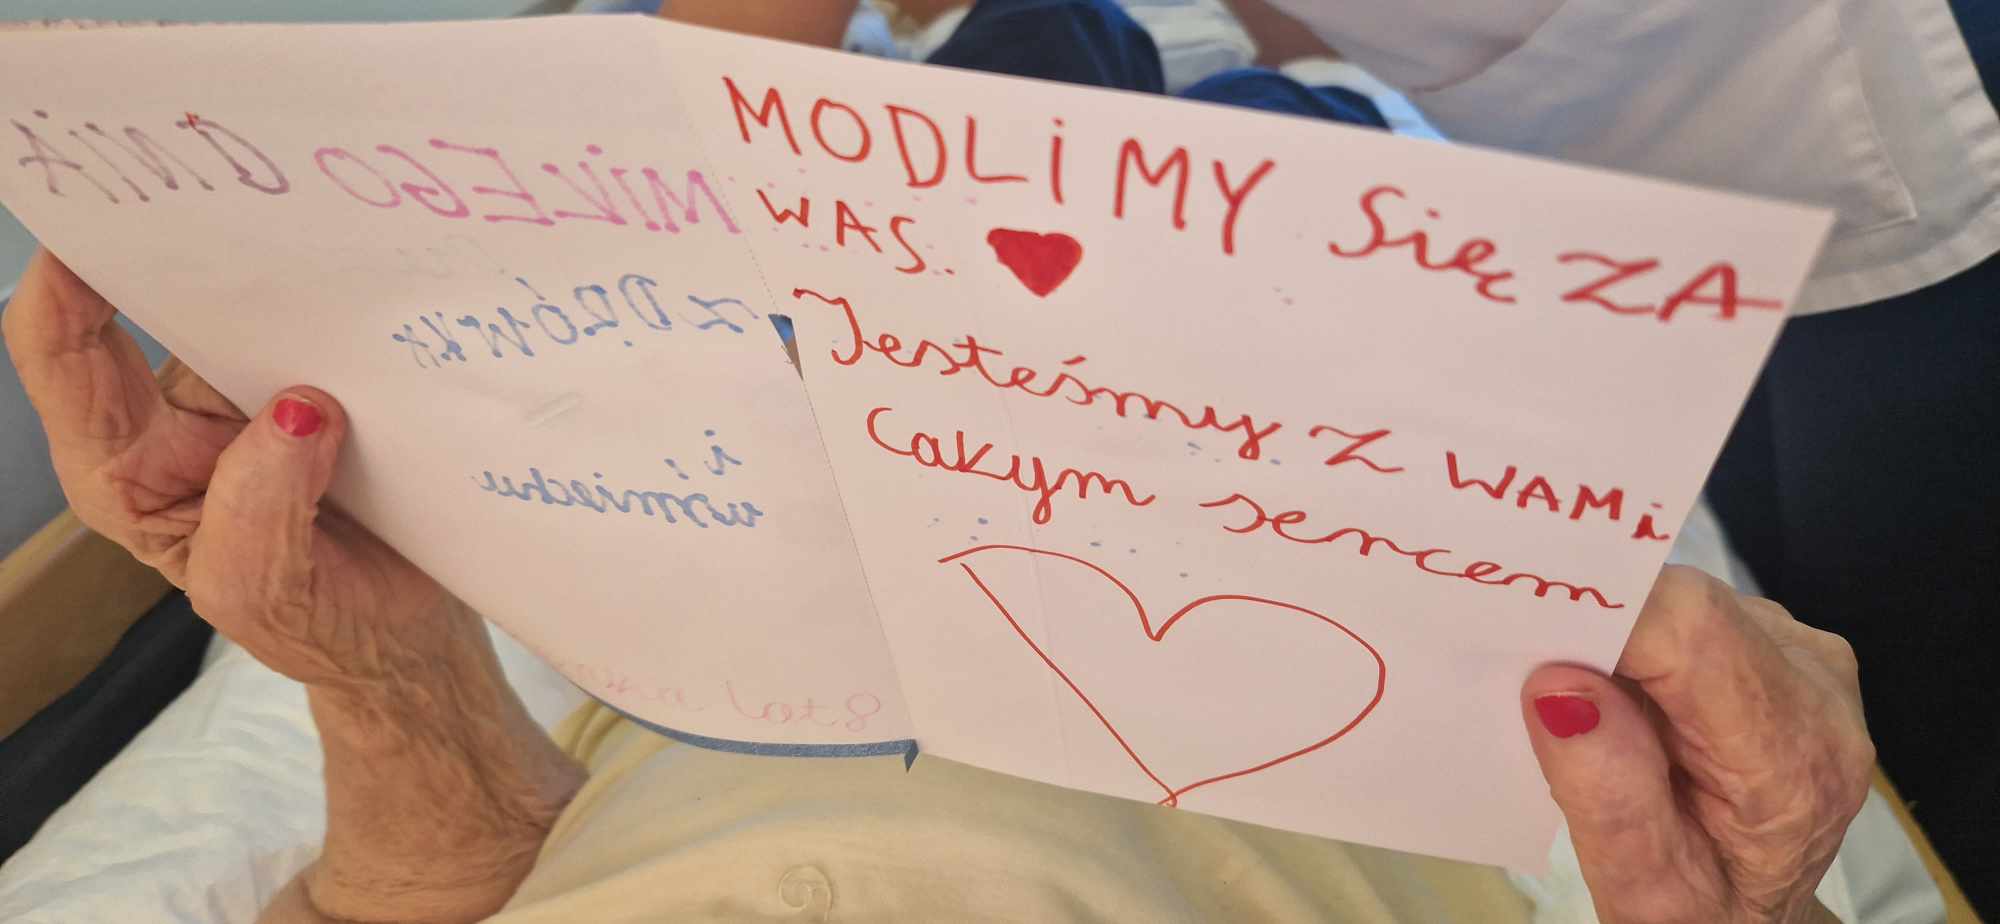 MIŁEGO DNIA
ZDRÓWKA
i
uśmiechu
lat 8
MODLiMY Się ZA
WAS.
Jesteśmy z WAMi
Całym sercem